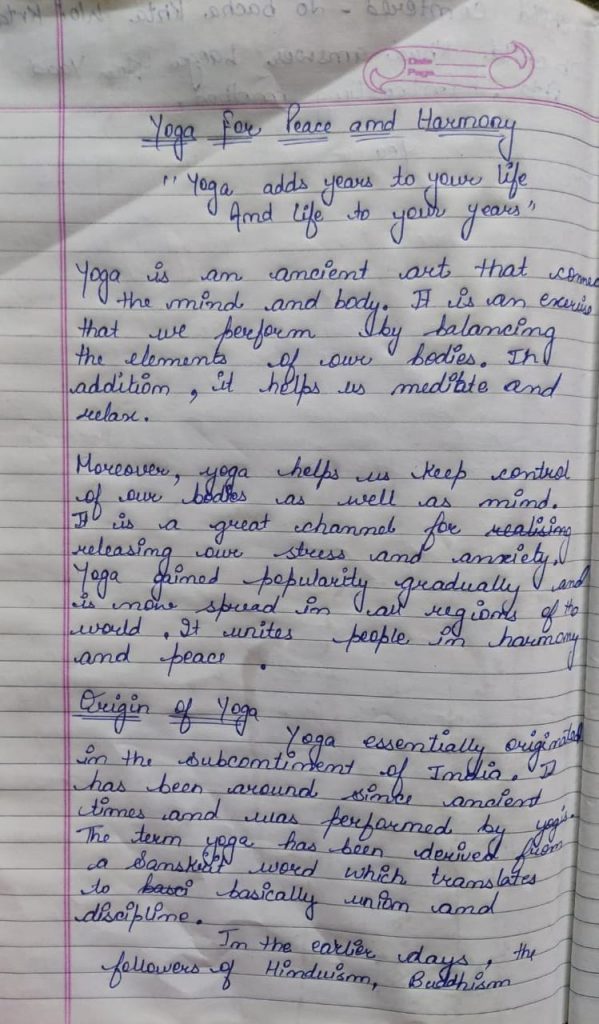 Date
Page
Yoga for Peace and Harmony
"Yoga adds years to your life
And life to your years"
Yoga is an ancient art that connec
the mind and body. It is an exercise
that we perform by balancing
the elements of our bodies. In
addition, it helps us meditate and
relax.
Moreover, yoga helps us keep control
of our bodies as well as mind.
It is a great channel for realising
releasing our stress and anxiety.
Yoga gained popularity gradually and
is now spread in all regions of the
world. It unites people in harmony
and peace.
Origin of Yoga
Yoga essentially originated
in the subcontinent of India. It
has been around since ancient
times and was performed by yogis.
The term yoga has been derived from
a Sanskrit word which translates
to basci basically union and
discipline.
In the earlier days, the
followers of Hinduism, Buddhism